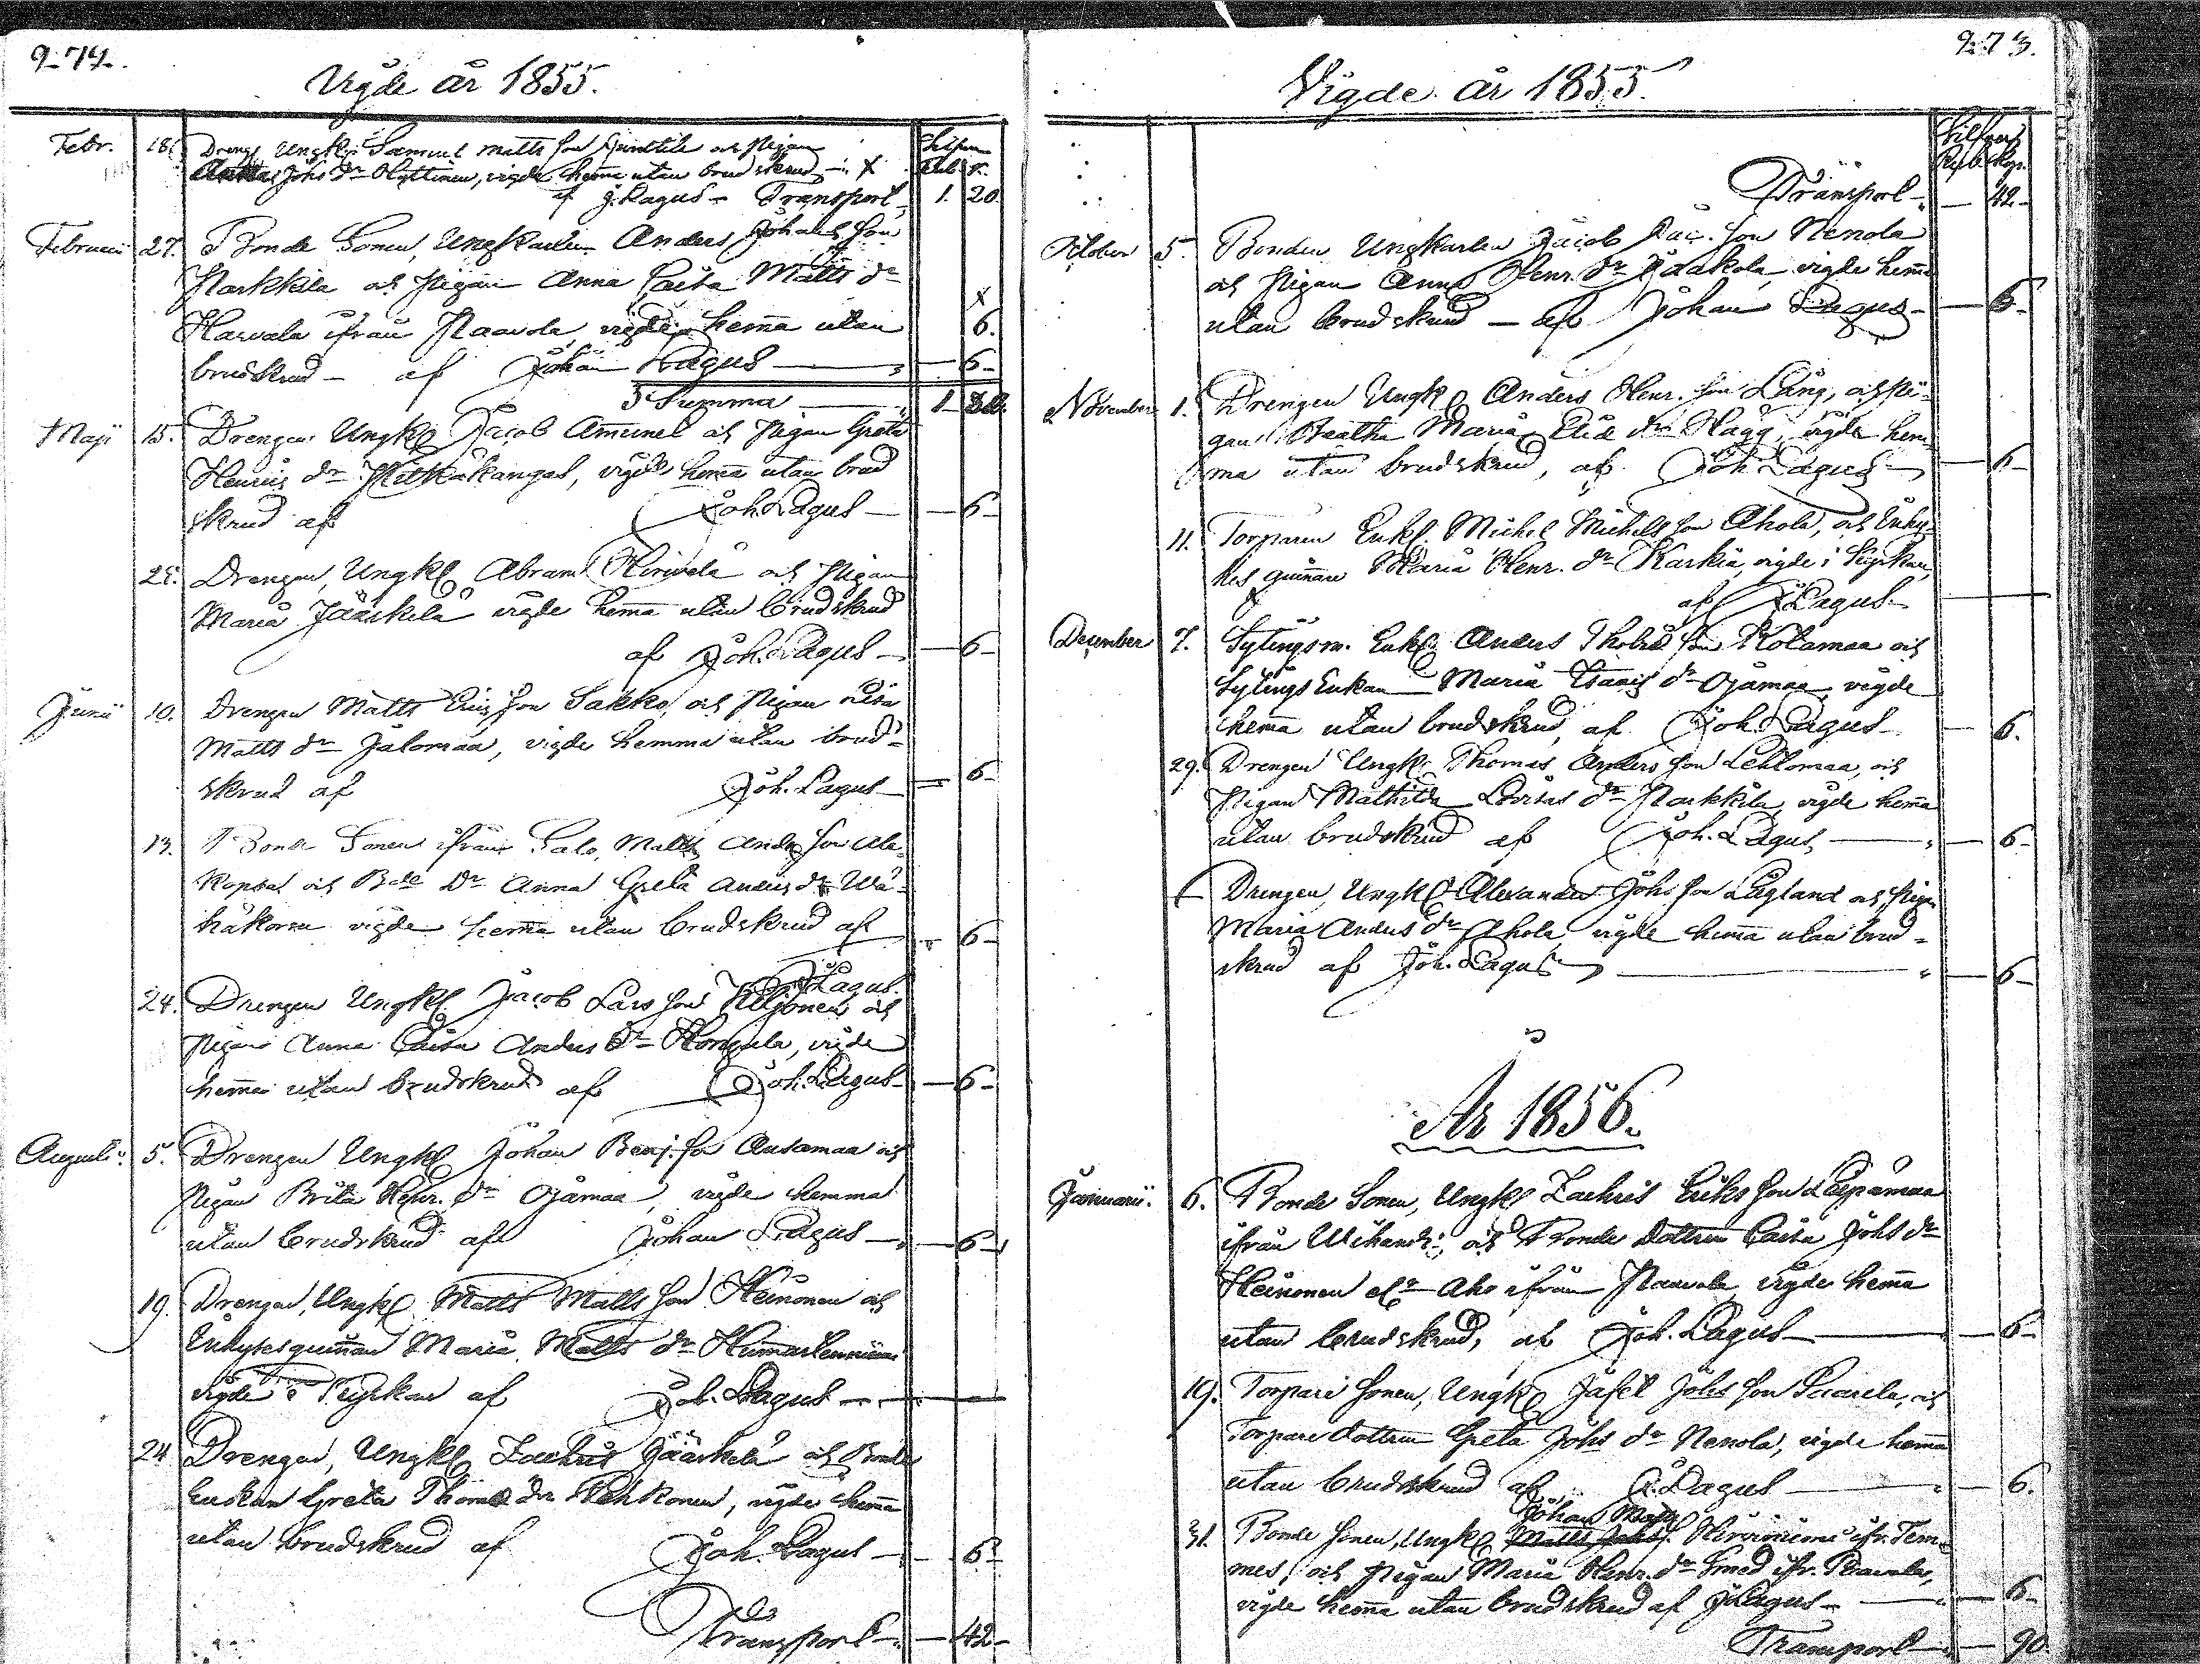 274.
Vigde år 1855.
Silfver
Febr. 18. Dreng. Ungk. Samuel Matts son och Pigan
Johs dr Hyttinen, vigde hemma utan brudskrud Rub. k.
af J. Lagus - Transport 1. 20.
Februarii 27. Bonde Sonen, Ungkarlen Anders Johans son
Markkila och Pigan Anna Caisa Matts dr
Harvala ifrån Paavola, vigde hemma utan 6.
brudskrud - af Johan Lagus - 6-
Summa 1
Maji 15. Drengen Ungk. Jacob Ammunet och Pigan Greta
Henrics dr Pitkäkangas, vigde hemma utan brud
skrud af Joh. Lagus - 6-
Drengen, Ungk. Abram Hirvelä och Pigan
Maria Jääskelä vigde hemma utan brudskrud
af Joh. Lagus - 6-
Junii 10. Drengen Matts Erics son Sakko, och Pigan
Matts dr Jylomaa, vigde hemma utan brud-
skrud af Joh. Lagus - 6-
13. Bonde Sonen ifrån Salo, Matts And. son Ala-
kopsa och Bde Dr Anna Greta Anders dr Wä-
häkorva vigde hemma utan brudskrud af 6-
Lagus.
24. Drengen Ungk. Jacob Lars son Kiljonen och
Pigan Anna Caisa Anders dr Honkala, vigde
hemma utan brudskrud af Joh. Lagus - 6-
Augusti 5. Drengen Ungk. Johan Benj. son Ansamaa och
Pigan Brita Henr. dr Ojamaa, vigde hemma
utan brudskrud af Johan Lagus - 6-
19. Drengen, Ungk. Matts Matts son Heinonen och
Enkytesquinnan Maria Matts dr
vigde i Kyrkan af Joh. Lagus -
24 Drengen, Ungk. Zachris Jääskelä och Bonde
Enckan Greta Thoms dr Pehkonen, vigde hemma
utan brudskrud af Joh. Lagus - 6-
Transport - 42-
273.
Vigde år 1855.
Silfver
Rub. kop.
Transport - 42-
October 5. Bonden Ungkarlen Jacob Jac. son Nenola
och Pigan Anna Henr. dr Laakola, vigde hemma
utan brudskrud - af Johan Lagus - 6-
November 1. Drengen Ungk. Anders Henr. son Lång, och Pi-
gan Beatha Maria Elid dr Hägg, vigde hem-
ma utan brudskrud, af Joh. Lagus - 6-
11. Torparen Enkl. Michel Michels son Ahola, och Enky-
tes quinnan Maria Henr. dr Karkia, vigde i Kyrkan,
af J Lagus -
December 7. Sytingsm. Enkl. Anders Thomas son Kotamaa och
Sytings Enkan Maria Isaacs dr Ojamaa vigde
hemma utan brudskrud, af Joh. Lagus - 6.
29. Drengen Ungk. Thomas Anders son Lehtomaa, och
Pigan Mathilda Lovisas dr Markkila, vigde hemma
utan brudskrud af Joh. Lagus, - 6-
Drengen, Ungk. Alexander Johs son Lågland och Pigan
Maria Anders dr Ahola, vigde hemma utan brud-
skrud af Joh. Lagus - 6-
År 1856.
Januarii. 6. Bonde Sonen, Ungk. Zachris Eriks son Leipämaa
ifrån Wihandi, och Bonde Dottren Caisa Johs dr
Heinonen elr Aho ifrån Paavola vigde hemma
utan brudskrud, af Joh. Lagus - 6-
19. Torpare sonen, Ungk. Jafet Johs son Paarila, och
Torpare dottren Greta Johs dr Nenola, vigde hemma
utan brudskrud af J. Lagus - 6.
Johan Matts
31. Bonde sonen, Ungk. Hirvoniemi ifr. Tem-
mes, och Pigan Maria Henr. dr Smed ifr. Paavola,
vigde hemma utan brudskrud af J Lagus - 6-
Transport - 90.